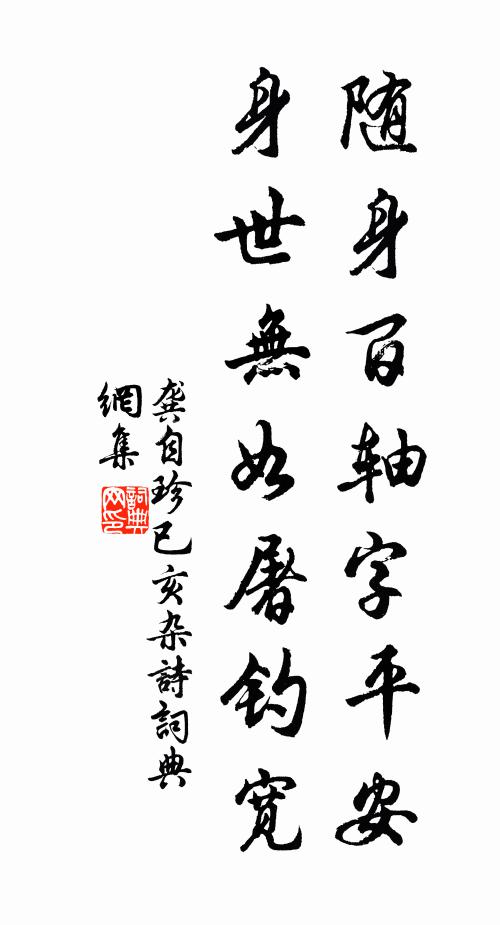 随身百轴字平安
身世無如屠钓寬
龚自珍已亥杂詩詞典
網集
詞典
网印